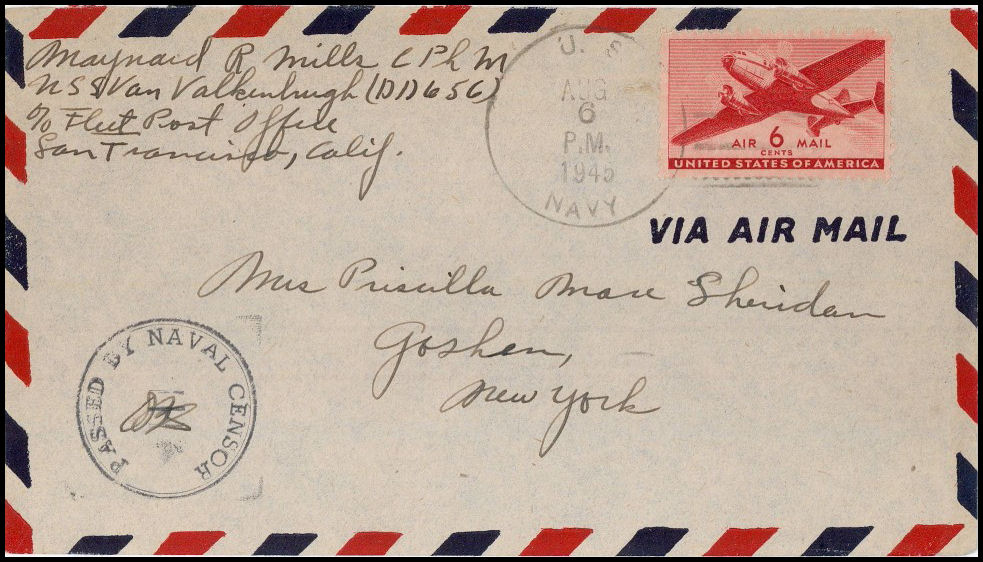 Maynard R Mills CPhM
USS Van Valkenburgh (DD656)
c/o Fleet Post Office
San Francisco, Calif.
U. S.
AUG
6
P.M.
1945
NAVY
AIR 6 MAIL
CENTS
UNITED STATES OF AMERICA
VIA AIR MAIL
Mrs Priscilla Mare Sheridan
Goshen,
New York
PASSED BY NAVAL CENSOR